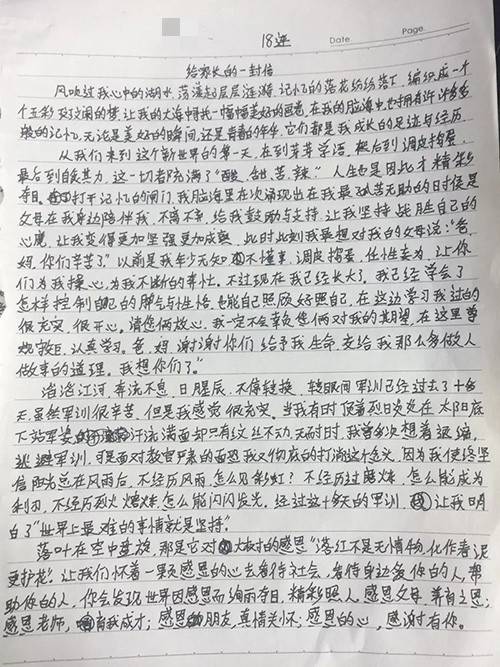 18运
Date
Page
给家长的一封信
风吹过我心中的湖水,荡漾起层层涟漪,记忆的落花纷纷落下,编织成一个
个五彩斑斓的梦,让我的大海中有一幅幅美好的画卷,在我的脑海中也拥有许许多多
般的记忆,无论是美好的瞬间,还是青春的年华,它们都是我成长的足迹与经历
从我们来到这个新世界的第一天,在到芽芽学语,极后到调皮捣蛋,
最后到自食其力,这一切都充满了"酸、甜、苦、辣。"人生也是因此才精彩
夺目,打开记忆的闸门,我脑海里在次涌现出在我最孤苦无助的时侯是
父母在我身边陪伴我,不离不弃,给我鼓励与支持,让我坚持战胜自己的
心魔,让我变得更加坚强更加成熟,此时此刻我最想对我的父母说:"爸
妈,你们辛苦了"以前是我年少无知不懂事,调皮捣蛋,任性妄为,让你
们为我操心,为我不断的奔忙。不过现在我已经长大了,我已经学会了
怎样控制自己的脾气与性格,也能自己照顾好照自己,在这边学习我过的
很充实,很开心。请您俩放心,我一定不会辜负您俩对我的期望,在这里尊
规守距,认真学习。爸,妈,谢谢你们给予我生命,交给我那么多做人
做事的道理。我想你们了。"
滔滔江河,奔流不息,日星辰,不停转换,转眼间军训已经过去了十多
天,虽然军训很辛苦,但是我感觉很充实。当我有时顶着烈日炎炎在太阳底
下站军姿汗流满面却只有纹丝不动,无耐时,我曾多次想着退缩,
逃避军训,可是面对教官严肃的面孔我又彻底的打消这个念头,因为我使终坚
信阳光总在风雨后,不经历风雨,怎么见彩虹?不经历过磨炼,怎么能成为
利刃,不经历烈火熔炼,怎么能闪闪发光,经过这十多天的军训,让我明
白了"世界上最难的事情就是坚持。"
落叶在空中盘旋,那是它对大树的感恩"落红不是无情物,化作春泥
更护花"。让我们怀着一颗感恩的心去看待社会,看待身边爱你的人,帮
助你的人,你会发现世界因感恩而绚丽夺目,精彩照人,感恩父母,养育之恩;
感恩老师,育我成才;感恩朋友,真情关怀;感恩的心,感谢有你。